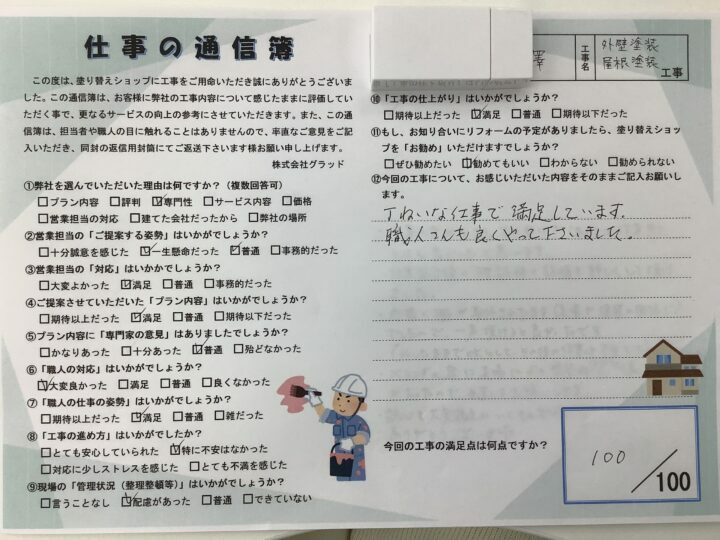 仕事の通信簿
この度は、塗り替えショップに工事をご用命いただき誠にありがとうございま
した。この通信簿は、お客様に弊社の工事内容について感じたままに評価してい
ただく事で、更なるサービスの向上の参考にさせていただきます。また、この通
信簿は、担当者や職人の目に触れることはありませんので、率直なご意見をご記
入いただき、同封の返信用封筒にてご返送下さいます様お願い申し上げます。
株式会社グラッド
①弊社を選んでいただいた理由は何ですか？（複数回答可）
□プラン内容 □評判 ☑専門性 □サービス内容 □価格
□営業担当の対応 □建てた会社だったから □弊社の場所
②営業担当の「ご提案する姿勢」はいかがでしょうか？
□十分誠意を感じた ☑一生懸命だった ☑普通 □事務的だった
③営業担当の「対応」はいかかでしょうか？
□大変よかった ☑満足 □普通 □事務的だった
④ご提案させていただいた「プラン内容」はいかがでしょうか？
□期待以上だった ☑満足 □普通 □期待以下だった
⑤プラン内容に「専門家の意見」はありましたでしょうか？
□かなりあった □十分あった ☑普通 □殆どなかった
⑥「職人の対応」はいかがでしょうか？
☑大変良かった □満足 □普通 □良くなかった
⑦「職人の仕事の姿勢」はいかがでしょうか？
□期待以上だった ☑満足 □普通 □雑だった
⑧「工事の進め方」はいかがでしたか？
□とても安心していられた ☑特に不安はなかった
□対応に少しストレスを感じた □とても不満を感じた
⑨現場の「管理状況（整理整頓等）」はいかがでしょうか？
□言うことなし ☑配慮があった □普通 □できていない
澤
工事名
外壁塗装
屋根塗装 工事
⑩「工事の仕上がり」はいかがでしょうか？
□期待以上だった ☑満足 □普通 □期待以下だった
⑪もし、お知り合いにリフォームの予定がありましたら、塗り替えショッ
プを「お勧め」いただけますでしょうか？
□ぜひ勧めたい ☑勧めてもいい □わからない □勧められない
⑫今回の工事について、お感じいただいた内容をそのままご記入お願いし
ます。
丁ねいな仕事で満足しています。
職人さんも良くやって下さいました。
今回の工事の満足点は何点ですか？
100／100